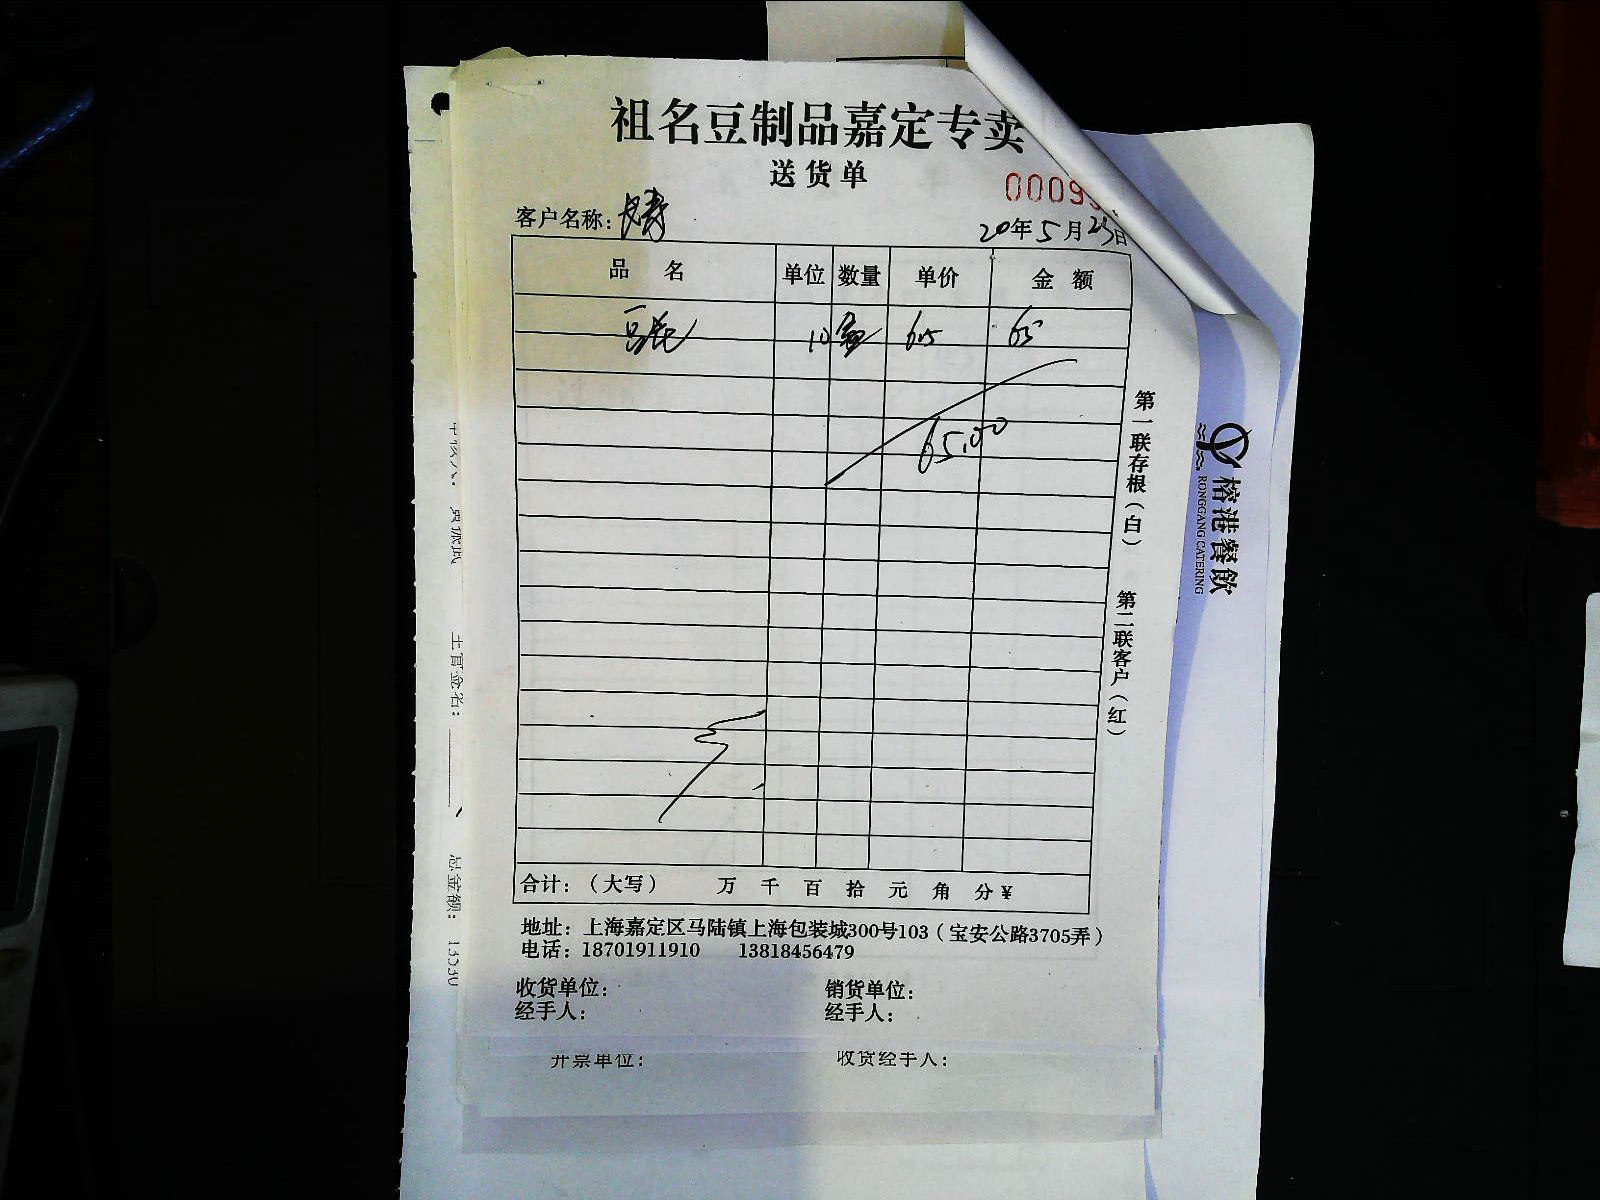 祖名豆制品嘉定专卖
送货单
0009
客户名称：
20年5月25日
品 名 单位 数量 单价 金 额
豆花 10 盒 6.5 65
65.00
合计：（大写） 万 千 百 拾 元 角 分￥
地址：上海嘉定区马陆镇上海包装城300号103（宝安公路3705弄）
电话：18701911910 13818456479
收货单位： 销货单位：
经手人： 经手人：
开票单位： 收货经手人：
第一联存根（白） 第二联客户（红）
榕港餐飲
RONGGANG CATERING
主管签名：
总金额：